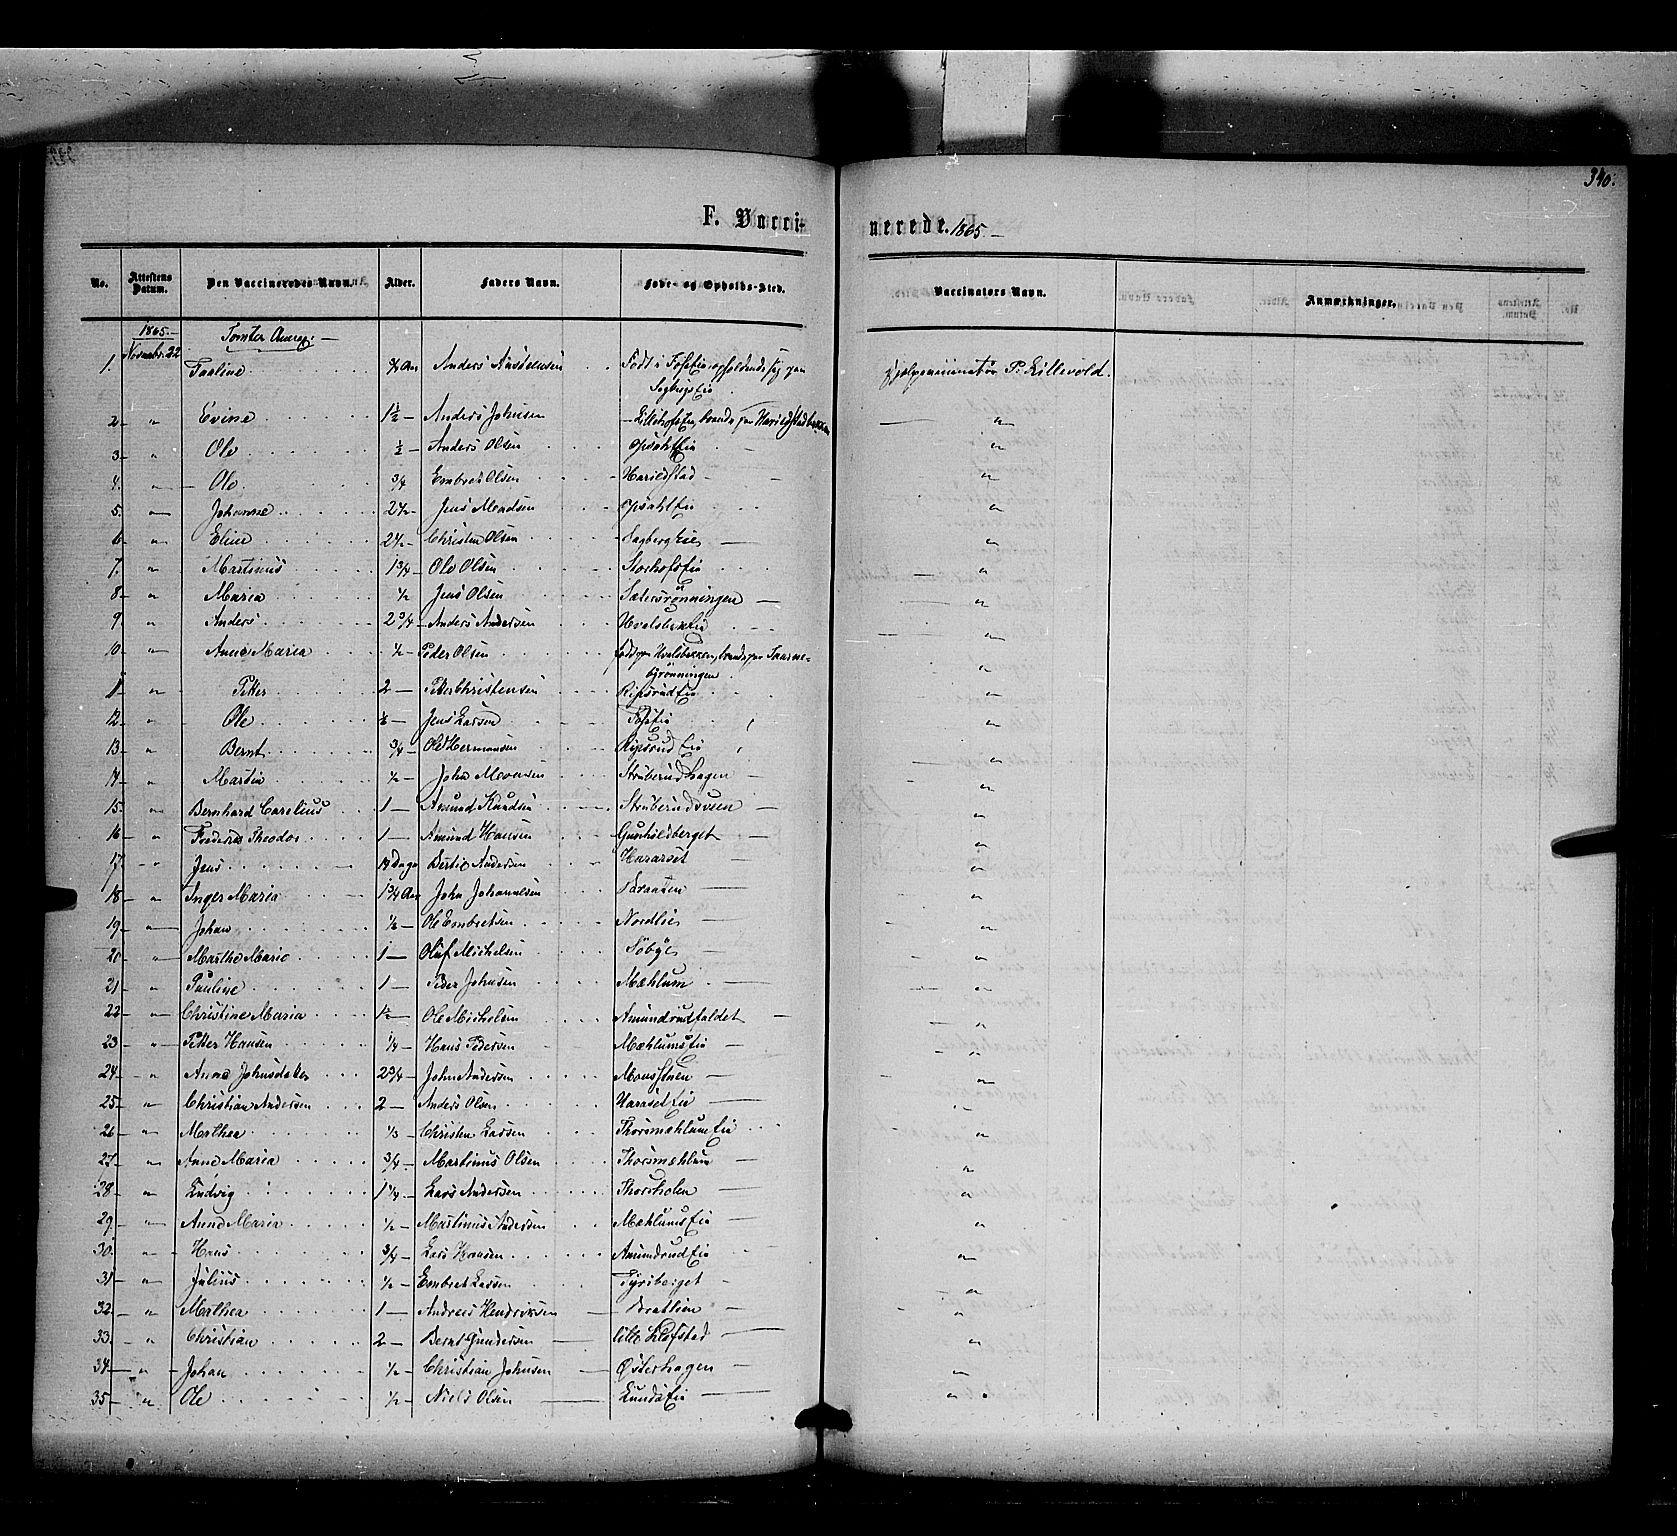 340.
F. Vacci-
nerede. 1865.-
No. Attestens Datum. Den Vaccineredes Navn. Alder. Faders Navn. Føde- og Opholds-Sted. Vaccinators Navn. Anmærkninger.
1865.-
Novembr. 22
1. Pauline Anders
Hjælpevaccinatør P. Lillevold.
2 " Evine 1½ Anders Johnsen "
3 " Ole ½ Anders Olsen Opsahl Eie "
4. " Ole 3/4 Embret Olsen Harildstad "
5. " Johanne 2½ Jens Madsen Opsahl Eie "
6 " Eline 2½ Christen Olsen Sagberg Eie "
7. " Martinus 1 3/4 Ole Olsen Storhofs Eie "
8 " Maria ½ Jens Olsen Sætersrønningen "
9 " Anders 2 3/4 Anders Andersen "
10. " Anne Maria ½ Peder Olsen
11 " Petter 2 Petter Christensen Ripsrud Eie "
12 " Ole ½ Jens Larsen "
13 " Bernt 3/4 Ole Hermansen Ripsrud Eie "
14 " Martin ½ John Monsen Struberudhagen "
15 " Bernhard Carelius 1 Amund Knudsen Struberudsveen "
16 " Frederik Theodor 1 Amund Hansen Gunhildberget "
17 " Jens Dage Bertil Andersen Hararset "
18 " Inger Maria 1 3/4 Aar John Johannesen Braaten "
19 " Johan ½ Ole Embretsen Nordlie "
20 " Marthe Marie 1 Oluf Michelsen Søbye "
21 " Pauline 1 Peder Johnsen Mæhlum "
22 " Christine Maria 1½ Ole Michelsen Amundrudfaldet "
23 " Petter Hansen 1/4 Hans Pedersen Mæhlums Eie "
24 " Anne Johnsdatter 2 3/4 John Andersen "
25 " Christian Andersen 2 Anders Olsen Haraset Eie "
26 " Mathea 1/3 Christen Larsen Thorsmæhlum Eie "
27 " Anne Maria 3/4 Martinus Olsen Thorsmæhlum "
28 " Ludvig 1 1/4 Lars Andersen Thorsholen "
29 " Anne Maria ½ Martinus Andersen Mæhlums Eie "
30. " Hans 3/4 Lars Hansen Amundrud Eie "
31 " Julius ½ Embret Larsen Tyriberget "
32 " Mathea 1 Andreas Hendriksen Bratlien "
33. " Christian 2 Bernt Gundersen lille Kløfstad "
34 " Johan ½ Christian Johnsen Østerhagen "
35 " Ole ½ Niels Olsen Lunds Eie "